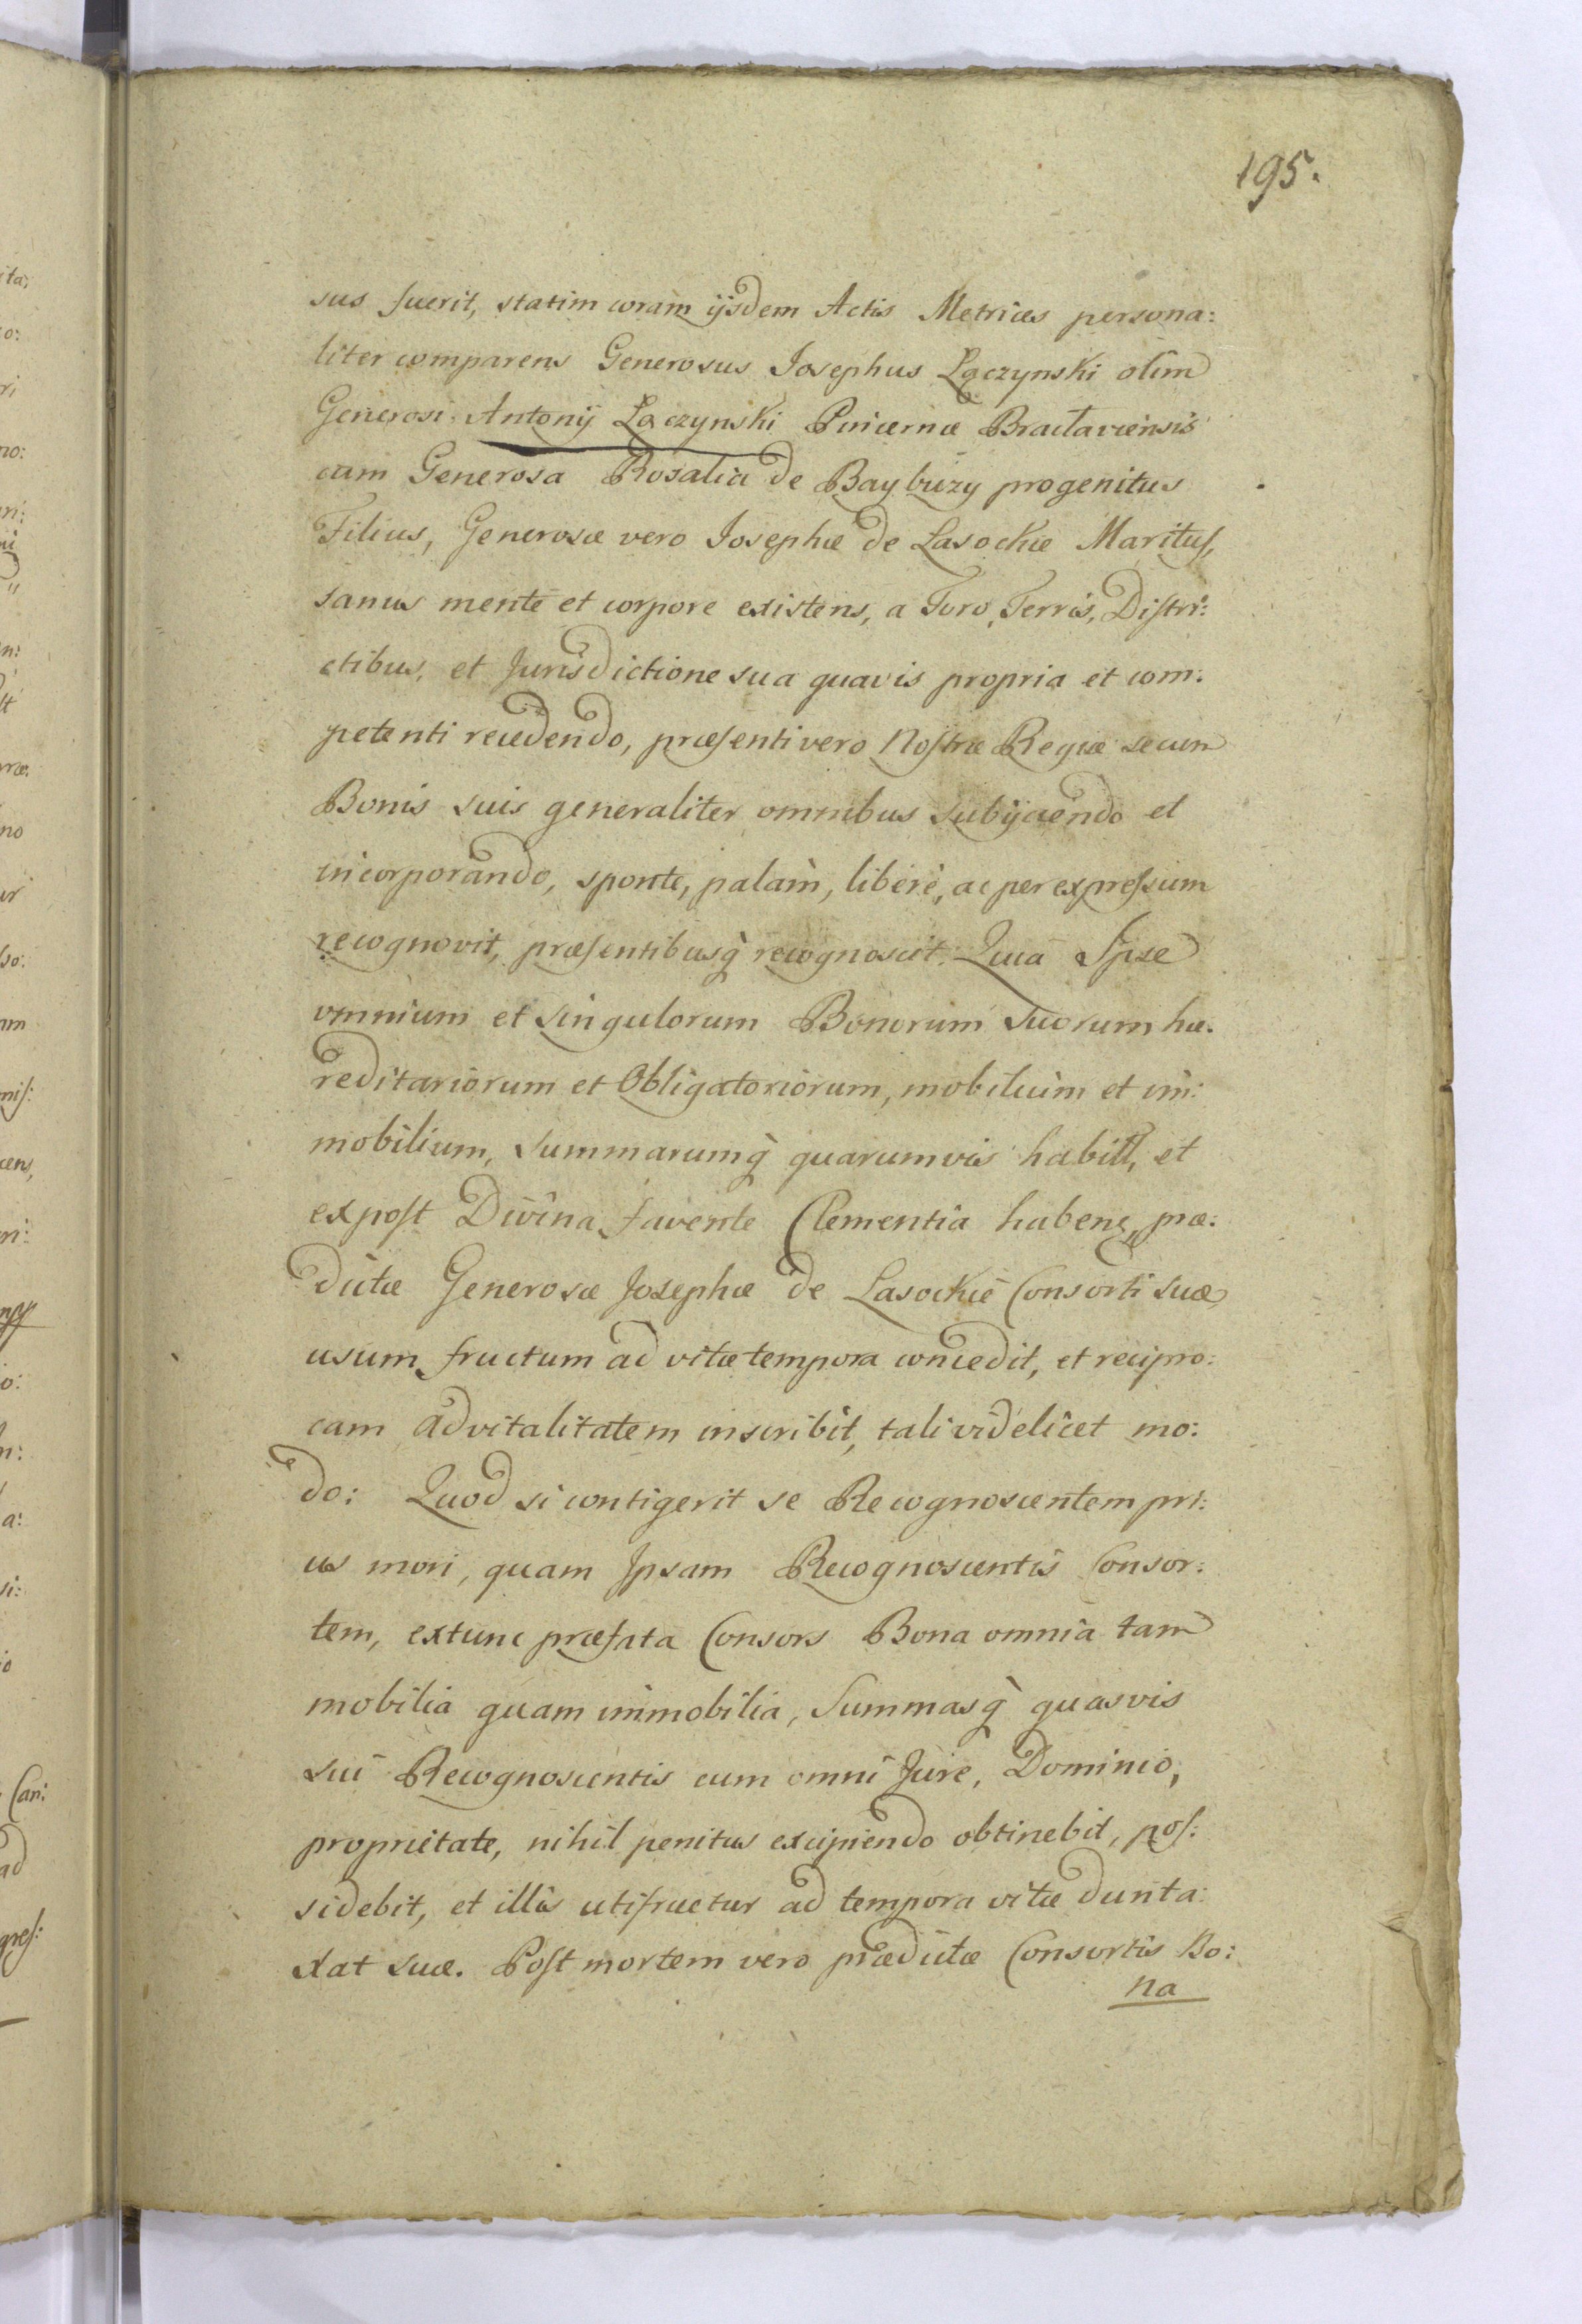 195.
sus fuerit, statim coram ijsdem Actis Metrices persona:
liter comparens Generosus Josephus Łączynski olim
Generosi Antonij Łączynski Pincernæ Bractaviensis
cum Generosa Rosalia de Baybuzy progenitus
Filius, Generosæ vero Josephæ de Lasockie Maritus,
sanus mente et corpore existens, a Foro, Terris, Distri:
ctibus, et Jurisdictione sua quavis propria et com:
petenti recedendo, præsenti vero Nostræ Regiæ secum
Bonis suis generaliter omnibus subijciendo et
incorporando, sponte, palàm, liberè, ac per expressum
recognovit, præsentibusq̀ recognoscit: Quia Ipse
omnium et singulorum Bonorum suorum hæ:
reditariorum et Obligatoriorum, mobilium et im:
mobilium, Summarumq̀ quarumvis habitt, et
expost Divina favente Clementia haben, præ:
dictæ Generosæ Josephæ de Lasockie Consorti suæ
usum fructum ad vitæ tempora concedit, et recipro:
cam advitalitatem inscribit, tali videlicet mo:
do: Quod si contigerit se Recognoscentem pri:
us mori, quam Ipsam Recognoscentis Consor:
tem, extunc præfata Consors Bona omnia tam
mobilia quam immobilia, Summasq̀ quasvis
sui Recognoscentis cum omni Jure, Dominio,
proprietate, nihil penitus excipiendo obtinebit, pos:
sidebit, et illis utifruetur ad tempora vitæ dunta:
xat suæ. Post mortem vero prædictæ Consortis Bo:
na